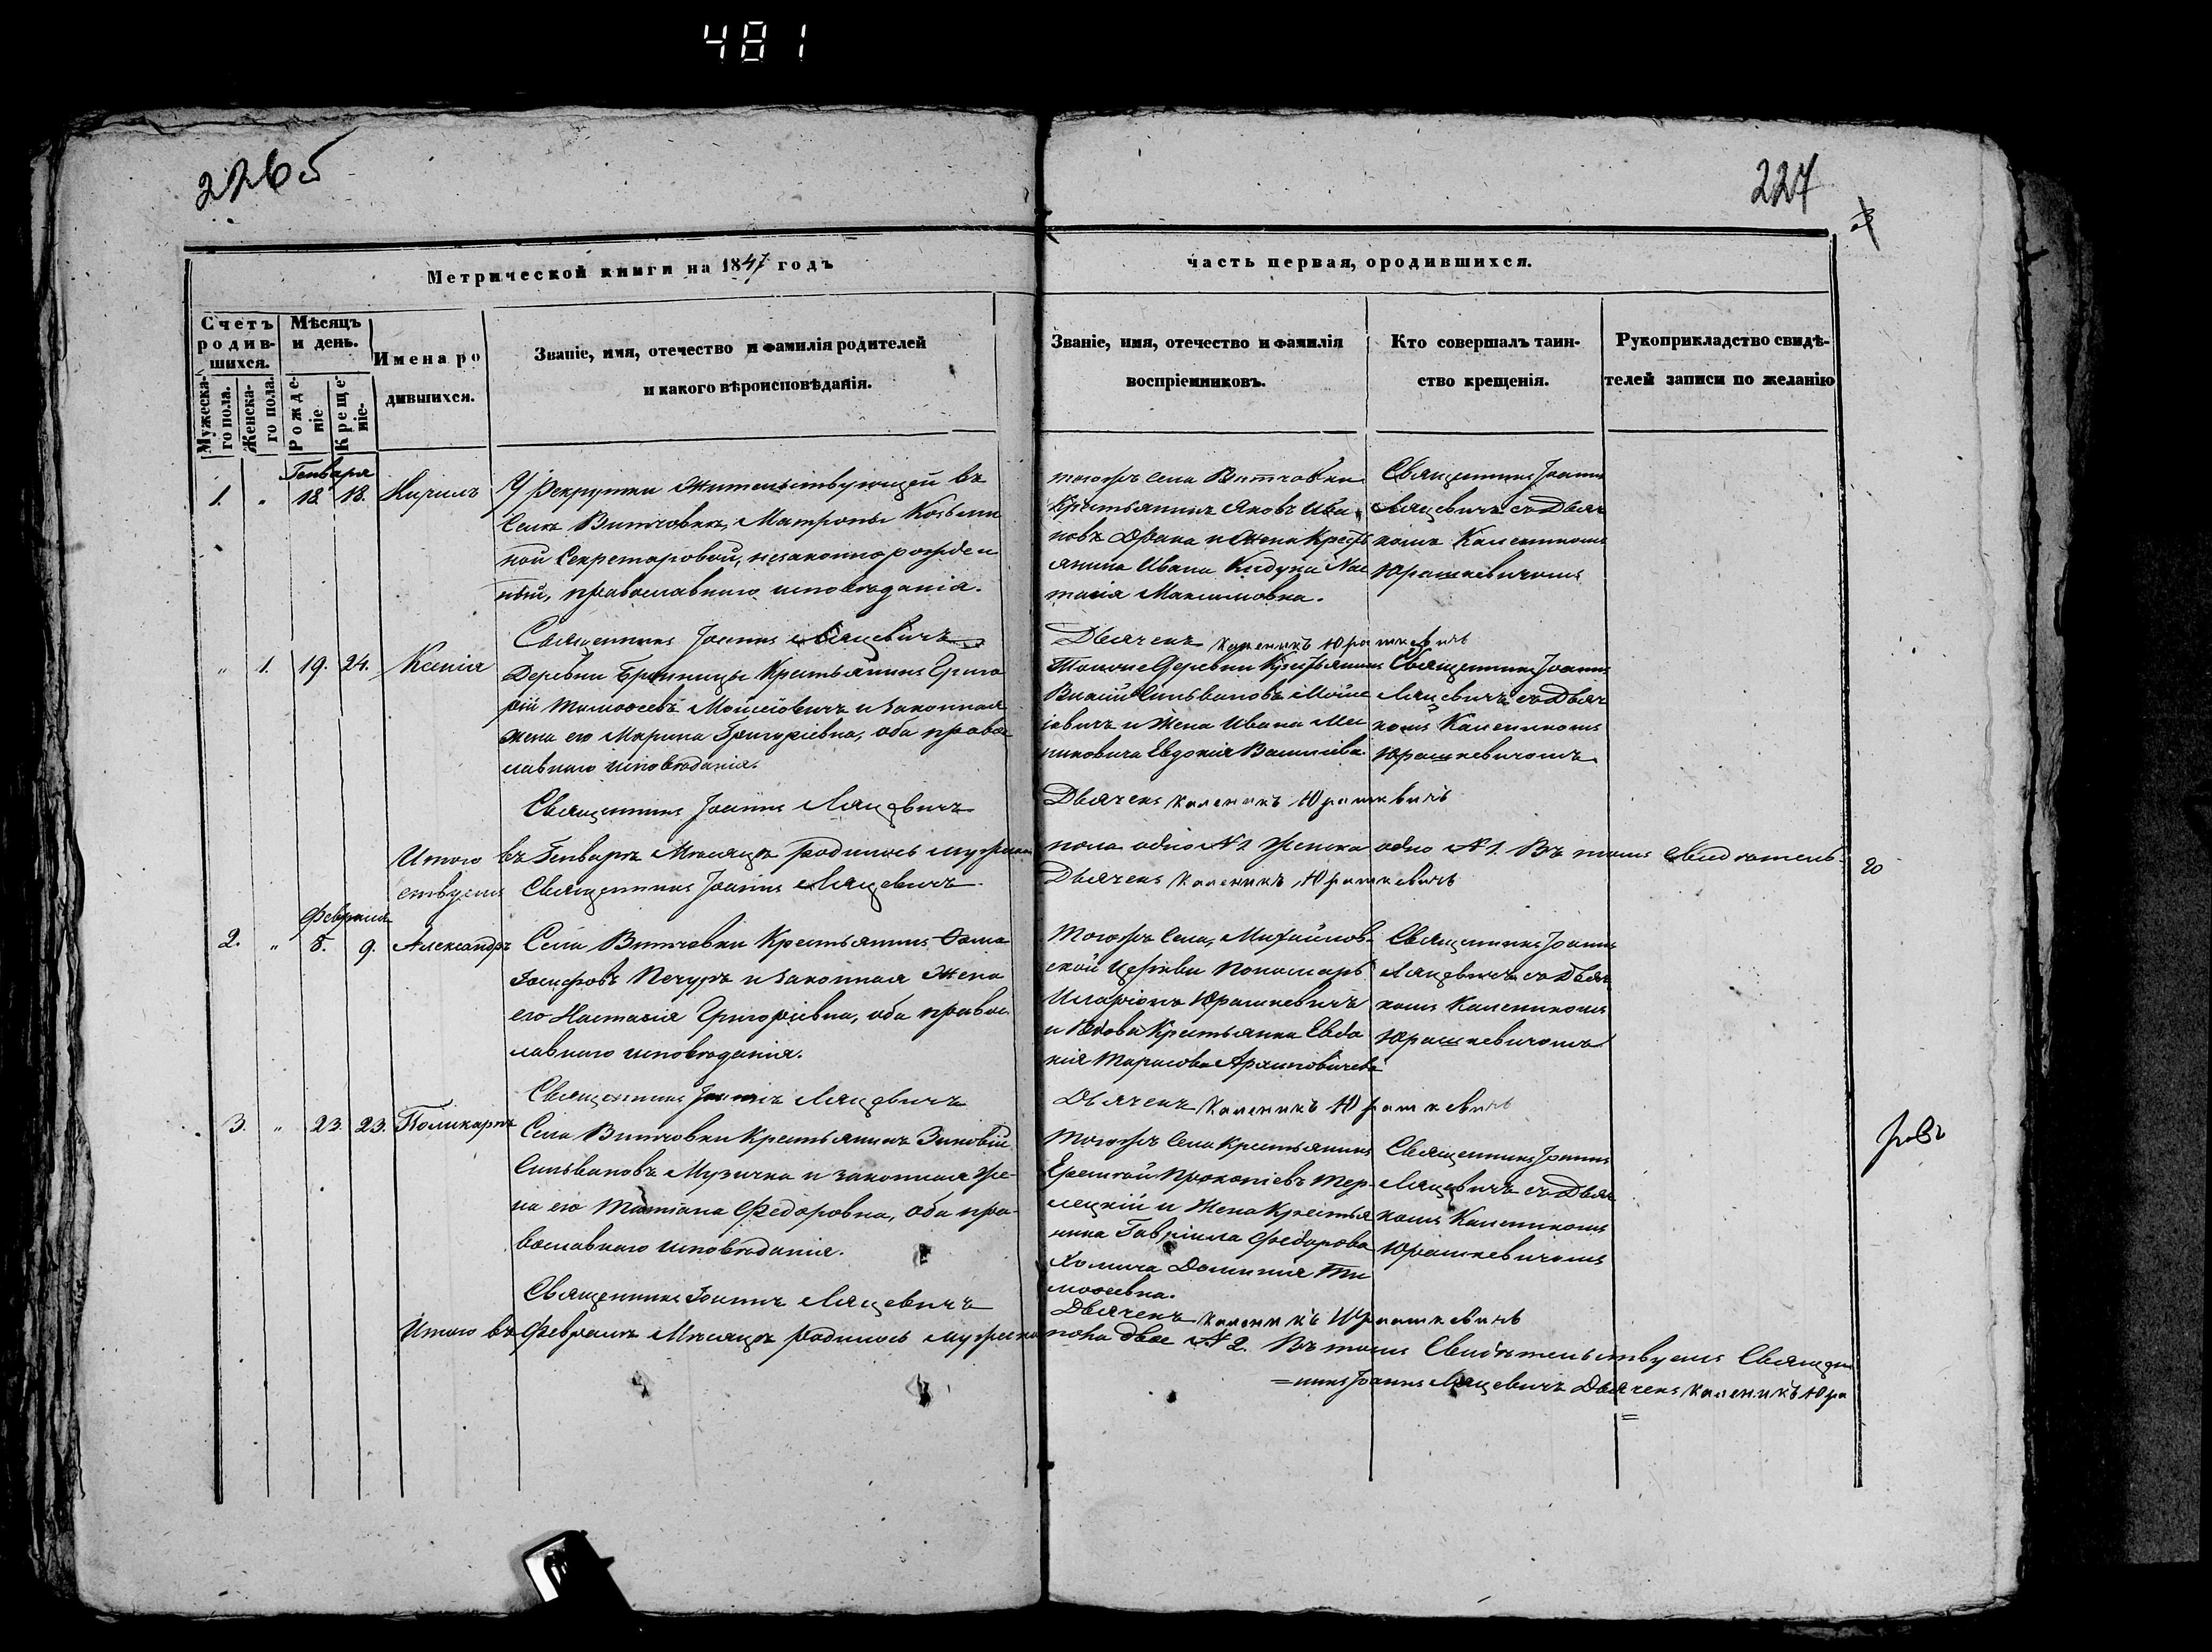 481
226об
227
Метрической книги на 1847 годъ
часть первая, ородившихся.
Счетъ родив-шихся.
Мужеска-го пола.
Женска-го пола.
Мѣсяцъ и день.
Рожде-ніе
Креще-ніе.
Имена ро
дившихся.
Званіе, имя, отечество и фамилія родителей
и какого вѣроисповѣданія.
Званіе, имя, отечество и фамилія
воспріемниковъ.
Кто совершалъ таин-
ство крещенія.
Рукоприкладство свидѣ-
телей записи по желанію
Генваря
1. " 18. 18. Кирилъ
У рекрутки жительствующей въ
Селѣ Витчовкѣ, Матроны Козьми
ной Секретаровой, незаконно рожден
ный, православнаго исповѣданія.
Священникъ Іоаннъ Ляцевичъ
тогожъ села Витчовки
Крестьянинъ Яковъ Ива
новъ и жена Крестъ
янина Ивана Кидуна Нас
тасія Максимовна.
Дьячекъ Каленикъ Юрашкевичъ
Священникъ Іоаннъ
Ляцевичъ съ Дьяч
комъ Каленикомъ
Юрашкевичомъ
" 1. 19. 24. Ксенія
Деревни Крестьянинъ Григо
рій Тимоѳеевъ Мойсіовичъ и законная
жена его Марина Григоріевна, оба право
славнаго исповѣданія.
Священникъ Іоаннъ Ляцевичъ
Тойже Деревни Крестьянинъ
Сильвановъ Мойсе
іевичъ и жена Ивана
Евдокія Василіева
Дьячекъ Каленикъ Юрашкевичъ
Священникъ Іоаннъ
Ляцевичъ съ Дьяч
комъ Каленикомъ
Юрашкевичомъ.
Итого въ Генварѣ Мѣсяцѣ родилось мужеска пола одно № 1 женска одно № 1. Въ томъ свидѣтель-
ствуемъ Священникъ Іоаннъ Ляцевичъ Дьячекъ Каленикъ Юрашкевичъ
Февраля
2. " 8. 9. Александръ
Села Витчовки Крестьянинъ Ѳома
Іосифовъ Печуръ и законная жена
его Настасія Григоріевна, оба правос
лавнаго исповѣданія.
Священникъ Іоаннъ Ляцевичъ
Тогожъ села, Михайлов-
ской церкви Пономарь
Иларіонъ Юрашкевичъ
и вдова Крестьянка Евдо
кія Тарасова
Дьячекъ Каленикъ Юрашкевичъ
Священникъ Іоаннъ
Ляцевичъ съ Дьяч
комъ Каленикомъ
Юрашкевичомъ
3. " 23. 23. Поликарпъ
Села Витчовки Крестьянинъ Зиновій
Сильвановъ Музичка и законная же-
на его Татіана Федоровна, оба пра-
вославнаго исповѣданія.
Священникъ Іоаннъ Ляцевичъ
Тогожъ села Крестьянинъ
Прокопіевъ Тер-
лецкій и жена Крестья
нина Гавріила Федорова
Хомича Домникія Ти
моѳеевна.
Дьячекъ Каленикъ Юрашкевичъ
Священникъ Іоаннъ
Ляцевичъ съ Дьяч
комъ Каленикомъ
Юрашкевичомъ
Итого въ Февралѣ Мѣсяцѣ родилось мужеска пола двое № 2. Въ томъ Свидѣтельствуемъ Священ
=никъ Іоаннъ Ляцевичъ Дьячекъ Каленикъ Юра
=